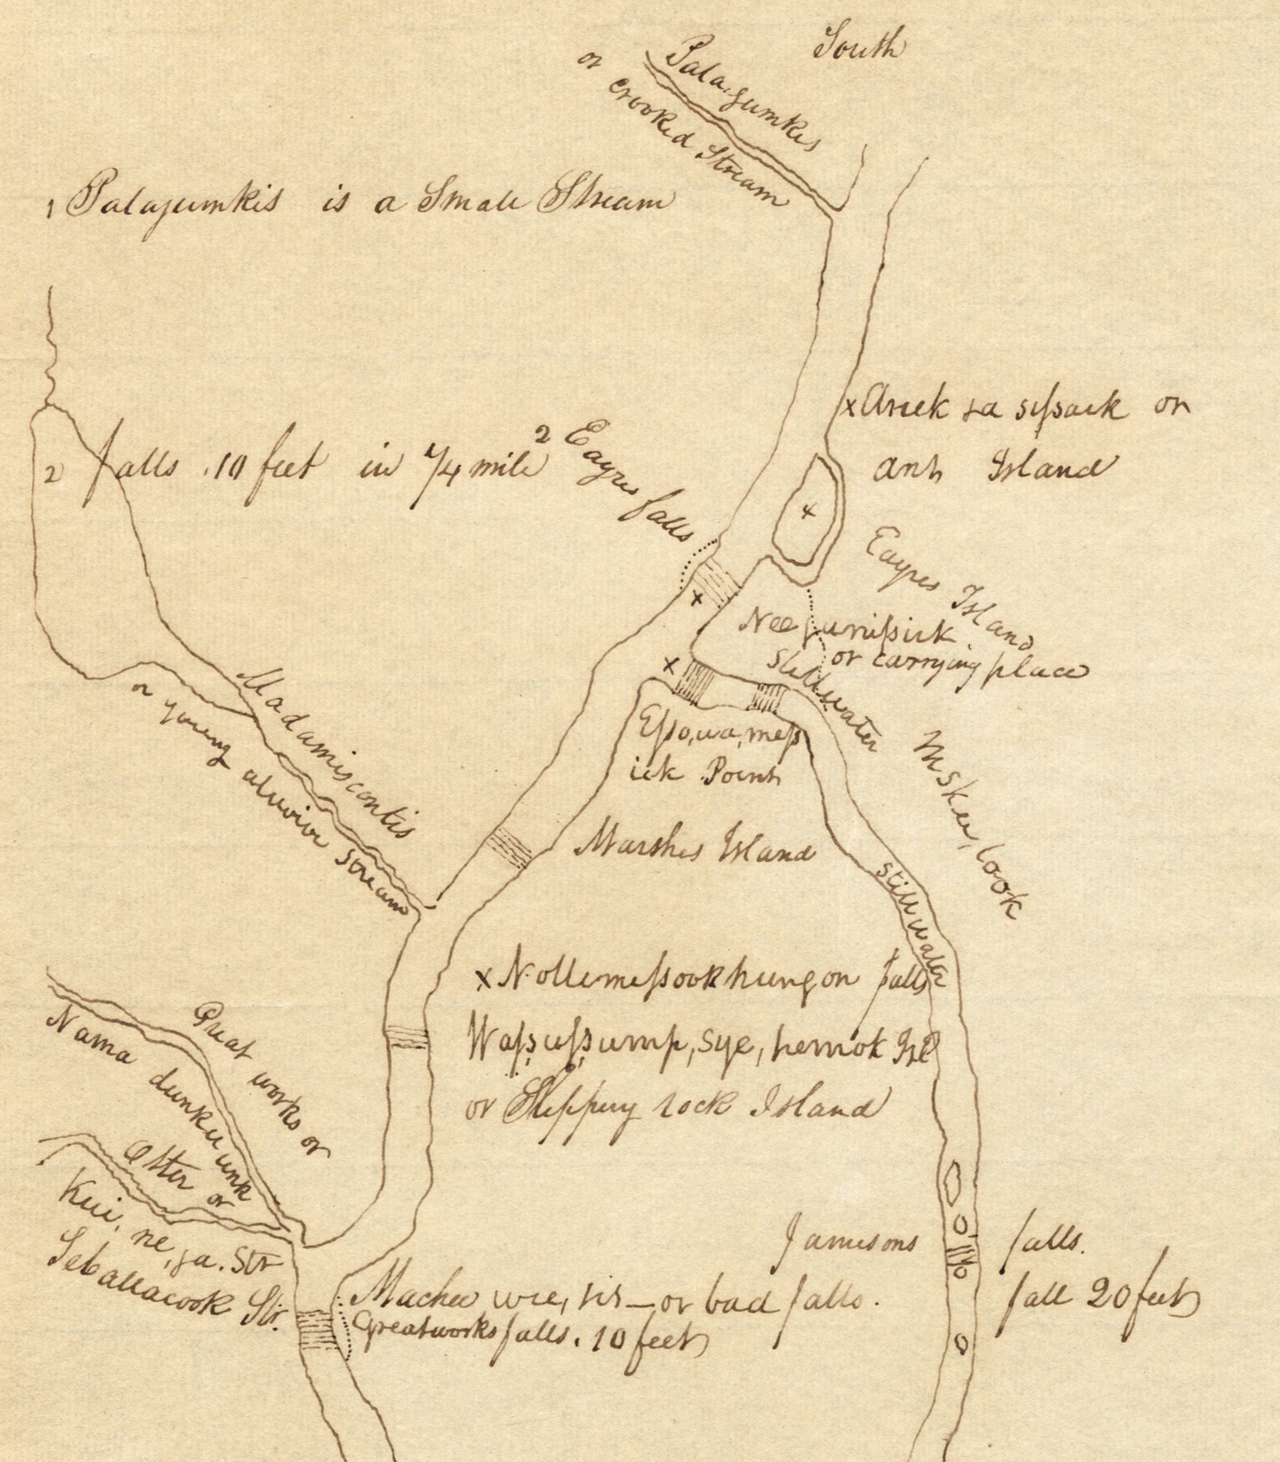 South
Pala,gumkis
or
crooked Stream
1 Palagumkis is a Small Stream
x Arick ga sißaick or
anh Island
2 falls .10 feet in 1/4 mile
2 Eayres falls
x
Eayres Island
Nee gunißick
or carrying place
x
Stillwater
x
Madamiscontis
or young alwive Stream
Eßo,wa,meß
ick Point
Mskee,look
Marshes Island
Stillwater
x Nollemeßookhungon falls
Waß,uß,ump,sye,hemok Isl
or Slippery rock Island
Great works or
Nama dunkee unk
Otter or
Kui,ne,ga. Str
Seballacook Str.
Jamesons falls.
fall 20 feet
Machee wee,sis — or bad falls.
Greatworks falls. 10 feet